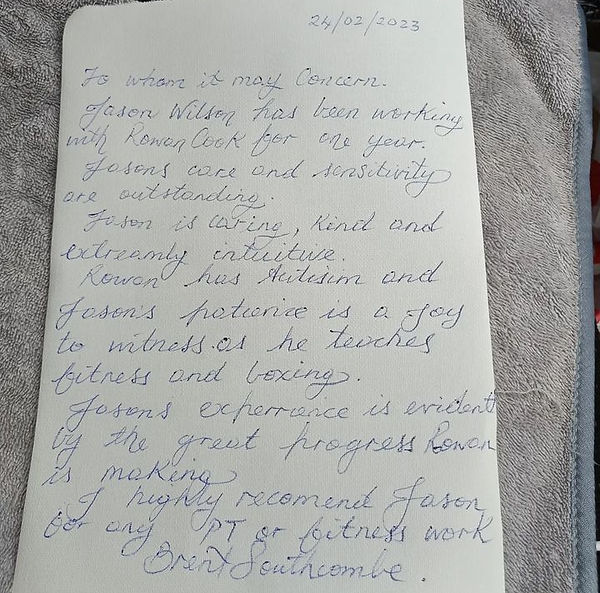 24/02/2023
To whom it may Concern.
Jason Wilson has been working
with Rowan Cook for one year.
Jasons care and sensitivity
are outstanding.
Jason is caring, Kind and
extreamly intuitive.
Rowan has Autisim and
Jason's patience is a Joy
to witness as he teaches
fitness and boxing.
Jasons experrance is evident
by the great progress Rowan
is making
I highly recomend Jason
for any PT or fitness work
Brent Southcombe.